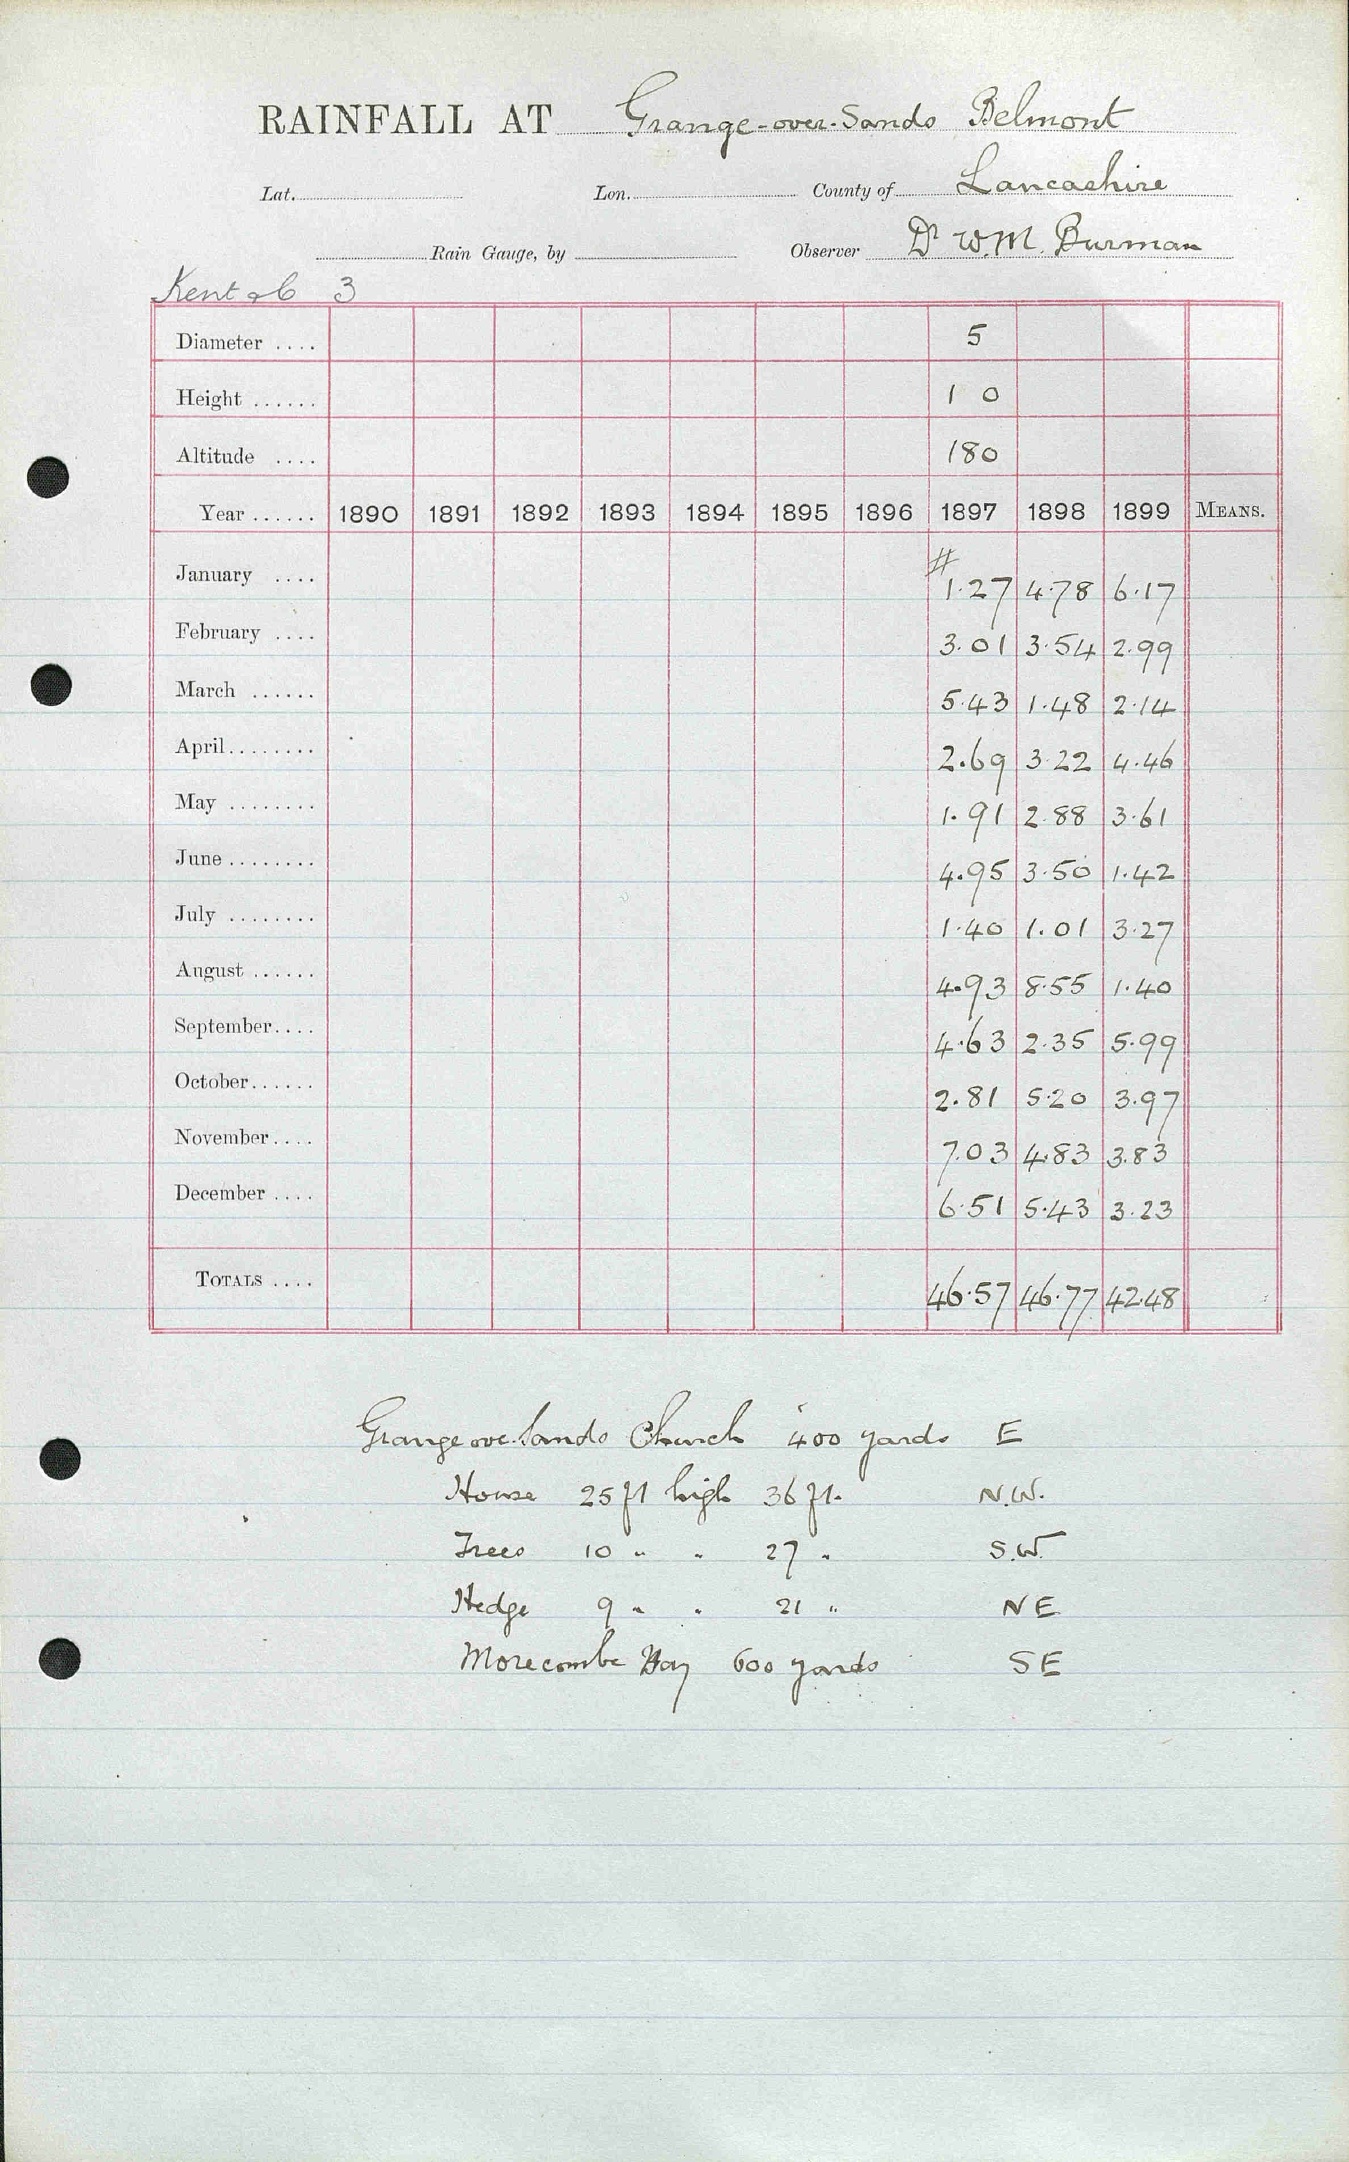 RAINFALL AT Grange-over-Sands Belmont
Lat. Lon. County of Lancashire
Rain Gauge, by Observer Dr W.M. Burman
Kent &c 3
Diameter .... 5
Height ...... 1 0
Altitude .... 180
Year ...... 1890 1891 1892 1893 1894 1895 1896 1897 1898 1899 MEANS.
#
January .... 1.27 4.78 6.17
February .... 3.01 3.54 2.99
March ...... 5.43 1.48 2.14
April ........ 2.69 3.22 4.46
May ........ 1.91 2.88 3.61
June ........ 4.95 3.50 1.42
July ........ 1.40 1.01 3.27
August ...... 4.93 8.55 1.40
September.... 4.63 2.35 5.99
October...... 2.81 5.20 3.97
November.... 7.03 4.83 3.83
December .... 6.51 5.43 3.23
TOTALS .... 46.57 46.77 42.48
Grange over Sands Church 400 yards E
House 25 ft high 36 ft. N.W.
Trees 10 " " 27 " S.W.
Hedge 9 " " 21 " NE
Morecombe Bay 600 yards SE